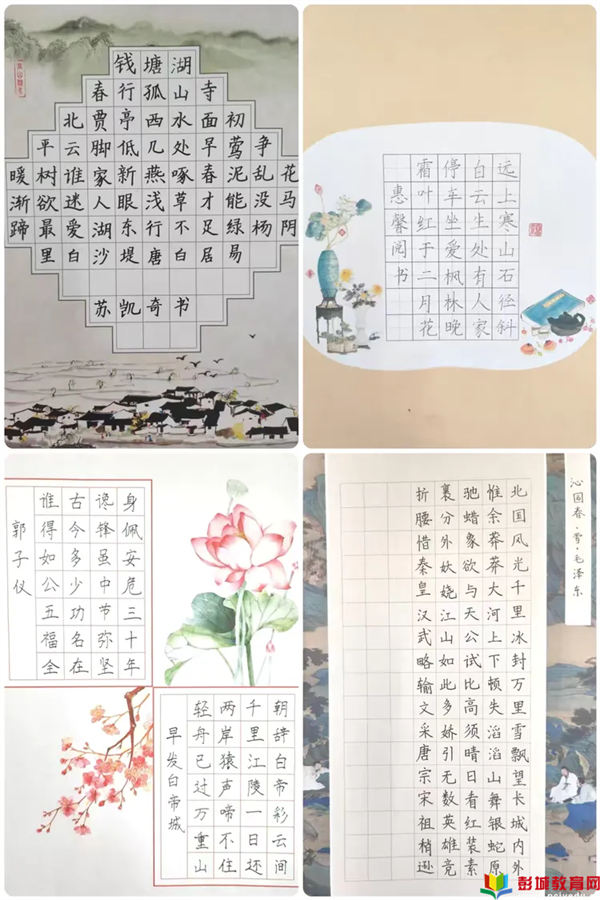 钱塘湖
春行孤山寺
北贾亭西水面初
平云脚低几处早莺争
暖树谁家新燕啄春泥乱花
渐欲迷人眼浅草才能没马
蹄最爱湖东行不足绿杨阴
里白沙堤唐白居易
苏凯奇书
远上寒山石径斜
白云生处有人家
停车坐爱枫林晚
霜叶红于二月花
惠馨阅书
身佩安危三十年
谗锋虽中节弥坚
古今多少功名在
谁得如公五福全
郭子仪
朝辞白帝彩云间
千里江陵一日还
两岸猿声啼不住
轻舟已过万重山
早发白帝城
沁园春·雪·毛泽东
北国风光千里冰封万里雪飘望长城内外
惟余莽莽大河上下顿失滔滔山舞银蛇原
驰蜡象欲与天公试比高须晴日看红装素
裹分外妖娆江山如此多娇引无数英雄竞
折腰惜秦皇汉武略输文采唐宗宋祖梢逊
彭城教育网